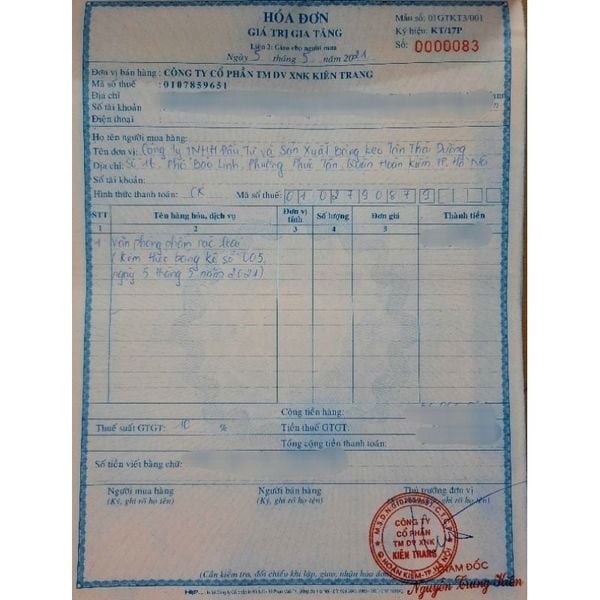 HÓA ĐƠN
GIÁ TRỊ GIA TĂNG
Liên 2: Giao cho người mua
Ngày 5 tháng 5 năm 2021
Mẫu số: 01GTKT3/001
Ký hiệu: KT/17P
Số: 0000083
Đơn vị bán hàng: CÔNG TY CỔ PHẦN TM DV XNK KIÊN TRANG
Mã số thuế : 0107859651
Địa chỉ
Số tài khoản
Điện thoại
Họ tên người mua hàng:
Tên đơn vị: Công ty TNHH Đầu Tư và Sản Xuất Băng Keo Tân Thái Dương
Địa chỉ: Số 16, Phố Bảo Linh, Phường Phúc Tân, Quận Hoàn Kiếm, TP. Hà Nội
Số tài khoản:
Hình thức thanh toán: CK Mã số thuế: 0102790879
STT Tên hàng hóa, dịch vụ Đơn vị tính Số lượng Đơn giá Thành tiền
1 2 3 4 5
1 Văn phòng phẩm các loại
(Kèm theo bảng kê số 005
ngày 5 tháng 5 năm 2021)
Cộng tiền hàng:
Thuế suất GTGT: 10 % Tiền thuế GTGT:
Tổng cộng tiền thanh toán:
Số tiền viết bằng chữ:
Người mua hàng Người bán hàng Thủ trưởng đơn vị
(Ký, ghi rõ họ tên) (Ký, ghi rõ họ tên)
M.S.D.N:0107859651-C.T.C.P
CÔNG TY
CỔ PHẦN
TM DV XNK
KIÊN TRANG
Q.HOÀN KIẾM-TP.HÀ NỘI
GIÁM ĐỐC
Nguyễn Trung Kiên
(Cần kiểm tra, đối chiếu khi lập, giao, nhận hóa đơn)